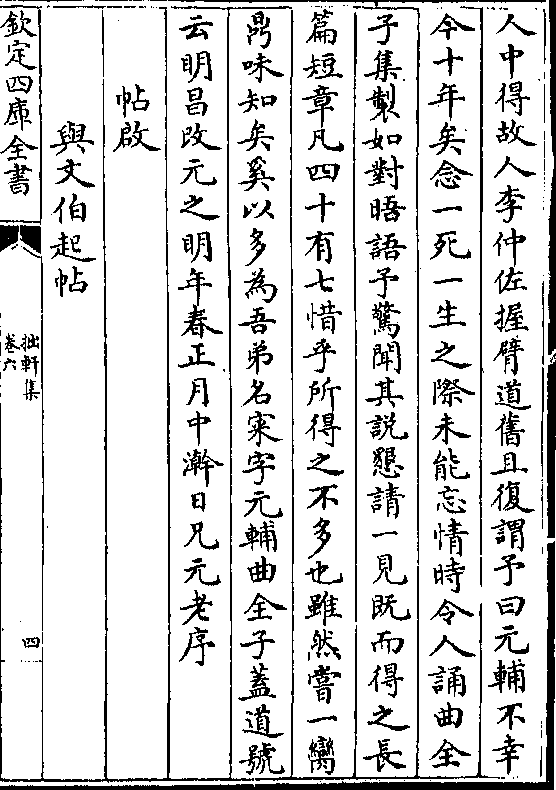 人中得故人李仲佐握臂道舊且復謂予曰元輔不幸
今十年矣念一死一生之際未能忘情時令人誦曲全
子集製如對晤語予驚聞其説懇請一見既而得之長
篇短章凡四十有七惜乎所得之不多也雖然嘗一臠
鼎味知矣奚以多為吾弟名寀字元輔曲全子蓋道號
云明昌改元之明年春正月中澣日兄元老序
帖啟
與文伯起帖
欽定四庫全書
拙軒集
卷六
四